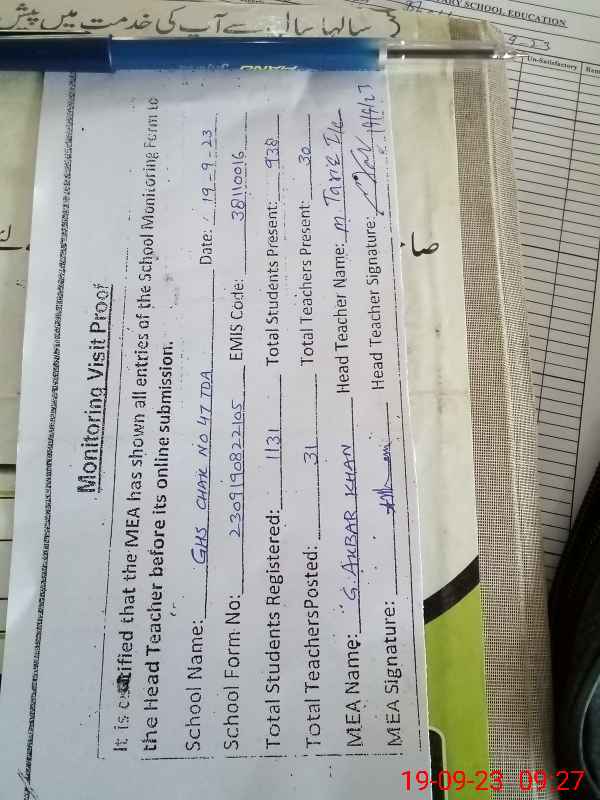 سالہا سال سے آپ کی خدمت میں پیش
SCHOOL EDUCATION
9-23
Un-Satisfactory
PIANO
Monitoring Visit Proof
It is certified that the MEA has shown all entries of the School Monitoring Form to
the Head Teacher before its online submission.
School Name: GHS CHAK NO 47 TDA Date: 19-9-23
School Form No: 2309190822105 EMIS Code: 38110016
Total Students Registered: 1131 Total Students Present: 938
Total TeachersPosted: 31 Total Teachers Present: 30
MEA Name: G. AKBAR KHAN Head Teacher Name: M Tariq
MEA Signature: Head Teacher Signature: 19/9/23
19-09-23 09:27